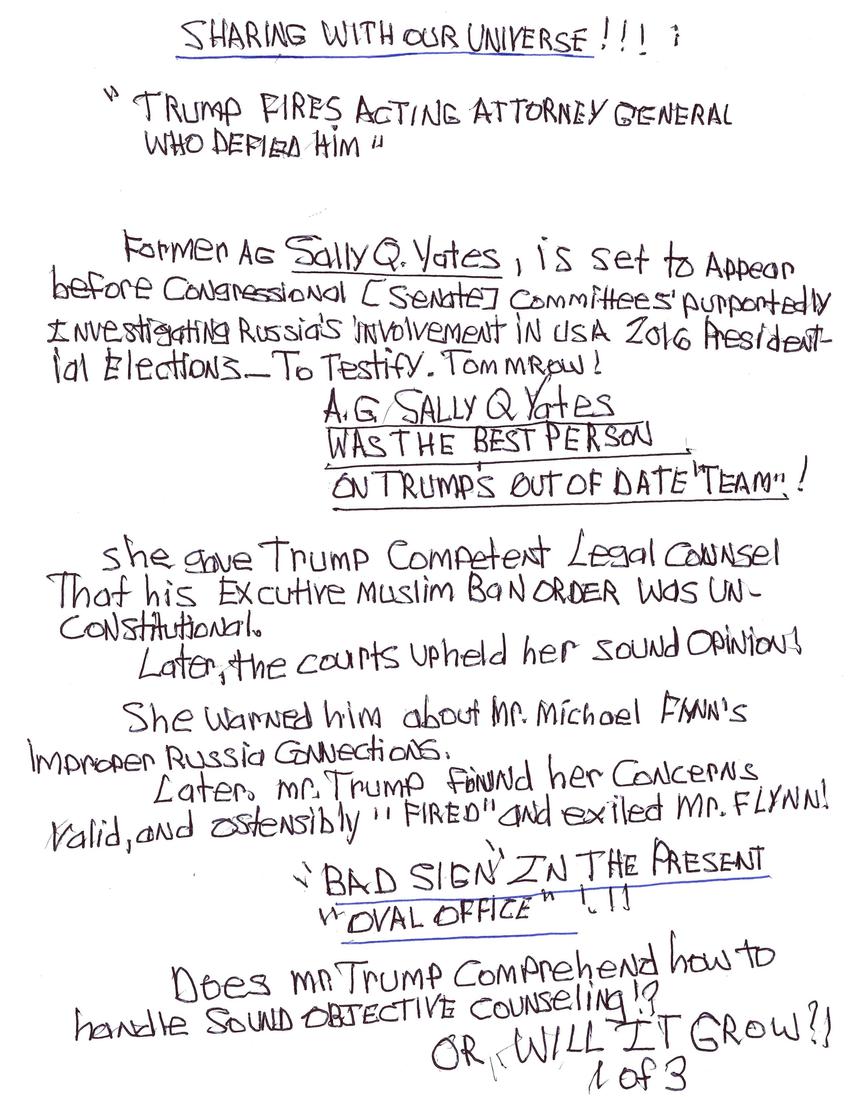 SHARING WITH OUR UNIVERSE!!! !
"TRUMP FIRES ACTING ATTORNEY GENERAL
WHO DEFIED HIM"
Former AG Sally Q. Yates, is set to Appear
before Congressional [Senate] Committees' purportedly
Investigating Russia's involvement in USA 2016 President-
ial Elections—To Testify. Tommrow!
A.G SALLY Q Yates
WAS THE BEST PERSON
ON TRUMP'S OUT OF DATE "TEAM"!
she gave Trump Competent Legal Counsel
That his Excutive Muslim Ban ORDER was UN-
Constitutional.
Later, the courts upheld her sound opinion!
She warned him about Mr. Michael Flynn's
Improper Russia Connections.
Later. mr. Trump found her Concerns
Valid, and ostensibly "FIRED" and exiled Mr. FLYNN!
"BAD SIGN" IN THE PRESENT
"OVAL OFFICE" !!!
Does mr Trump Comprehend how to
handle SOUND OBJECTIVE counseling!?
OR, WILL IT GROW?!
1 of 3